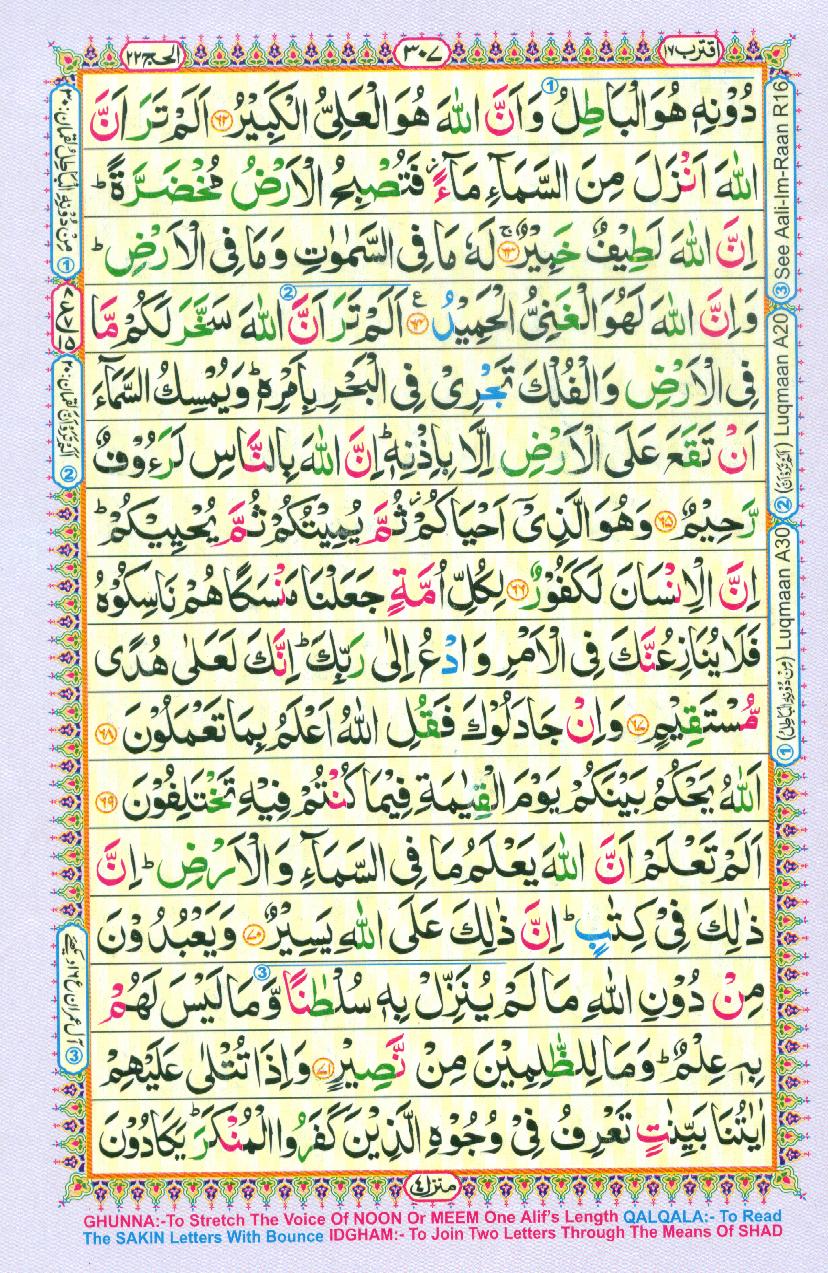 اقترب ۱۷
۳۰۷
الحج ۲۲
دُوْنِهٖ هُوَ الْبَاطِلُ وَاَنَّ اللّٰهَ هُوَ الْعَلِیُّ الْكَبِیْرُ ﴿۶۲﴾ اَلَمْ تَرَ اَنَّ
اللّٰهَ اَنْزَلَ مِنَ السَّمَآءِ مَآءً ؗ فَتُصْبِحُ الْاَرْضُ مُخْضَرَّةً ؕ
اِنَّ اللّٰهَ لَطِیْفٌ خَبِیْرٌ ﴿۶۳﴾ۚ لَهٗ مَا فِی السَّمٰوٰتِ وَمَا فِی الْاَرْضِ ؕ
وَاِنَّ اللّٰهَ لَهُوَ الْغَنِیُّ الْحَمِیْدُ ﴿۶۴﴾ اَلَمْ تَرَ اَنَّ اللّٰهَ سَخَّرَ لَكُمْ مَّا
فِی الْاَرْضِ وَالْفُلْكَ تَجْرِیْ فِی الْبَحْرِ بِاَمْرِهٖ ؕ وَیُمْسِكُ السَّمَآءَ
اَنْ تَقَعَ عَلَی الْاَرْضِ اِلَّا بِاِذْنِهٖ ؕ اِنَّ اللّٰهَ بِالنَّاسِ لَرَءُوْفٌ
رَّحِیْمٌ ﴿۶۵﴾ وَهُوَ الَّذِیْۤ اَحْیَاكُمْ ؗ ثُمَّ یُمِیْتُكُمْ ثُمَّ یُحْیِیْكُمْ ؕ
اِنَّ الْاِنْسَانَ لَكَفُوْرٌ ﴿۶۶﴾ لِكُلِّ اُمَّةٍ جَعَلْنَا مَنْسَكًا هُمْ نَاسِكُوْهُ
فَلَا یُنَازِعُنَّكَ فِی الْاَمْرِ وَادْعُ اِلٰی رَبِّكَ ؕ اِنَّكَ لَعَلٰی هُدًی
مُّسْتَقِیْمٍ ﴿۶۷﴾ وَاِنْ جَادَلُوْكَ فَقُلِ اللّٰهُ اَعْلَمُ بِمَا تَعْمَلُوْنَ ﴿۶۸﴾
اَللّٰهُ یَحْكُمُ بَیْنَكُمْ یَوْمَ الْقِیٰمَةِ فِیْمَا كُنْتُمْ فِیْهِ تَخْتَلِفُوْنَ ﴿۶۹﴾
اَلَمْ تَعْلَمْ اَنَّ اللّٰهَ یَعْلَمُ مَا فِی السَّمَآءِ وَالْاَرْضِ ؕ اِنَّ
ذٰلِكَ فِیْ كِتٰبٍ ؕ اِنَّ ذٰلِكَ عَلَی اللّٰهِ یَسِیْرٌ ﴿۷۰﴾ وَیَعْبُدُوْنَ
مِنْ دُوْنِ اللّٰهِ مَا لَمْ یُنَزِّلْ بِهٖ سُلْطٰنًا وَّمَا لَیْسَ لَهُمْ
بِهٖ عِلْمٌ ؕ وَمَا لِلظّٰلِمِیْنَ مِنْ نَّصِیْرٍ ﴿۷۱﴾ وَاِذَا تُتْلٰی عَلَیْهِمْ
اٰیٰتُنَا بَیِّنٰتٍ تَعْرِفُ فِیْ وُجُوْهِ الَّذِیْنَ كَفَرُوا الْمُنْكَرَ ؕ یَكَادُوْنَ
منزل ۴
③ See Aali-Im-Raan R16
② (اَلَمْ تَرَ اَنَّ) Luqmaan A20
① (مِنْ دُوْنِهِ الْبَاطِلُ) Luqmaan A30
① مِنْ دُوْنِهِ الْبَاطِلُ لقمان:۳۰
GHUNNA:-To Stretch The Voice Of NOON Or MEEM One Alif's Length QALQALA:- To Read
The SAKIN Letters With Bounce IDGHAM:- To Join Two Letters Through The Means Of SHAD